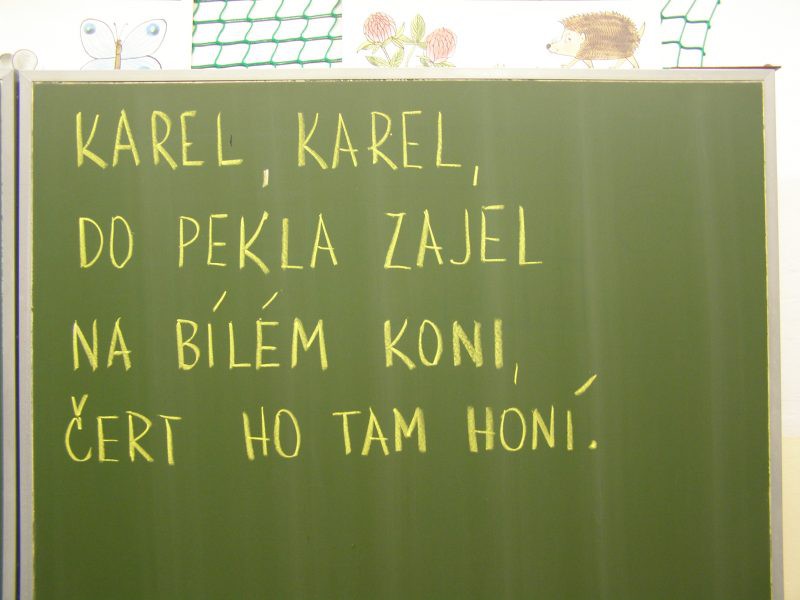 KAREL, KAREL,
DO PEKLA ZAJEL
NA BÍLÉM KONI,
ČERT HO TAM HONÍ.